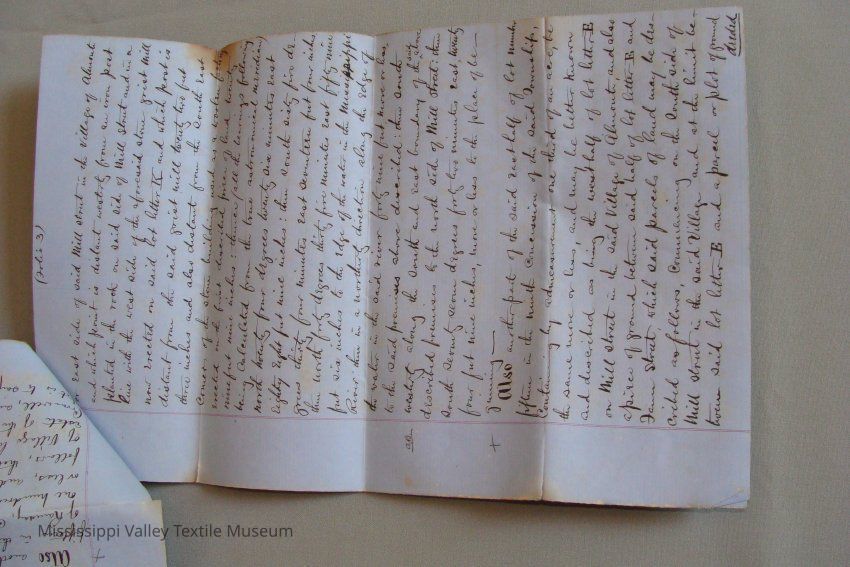 (Folio 3)
or East side of said Mill Street in the Village of Almonte
and which point is distant westerly from an iron post
planted in the rock on said side of Mill Street and in a
line with the west side of the aforesaid stone grist Mill
now erected on said lot letter K and which post is
distant from the said grist mill twenty two feet
three inches and also distant from the South East
corner of the stone building used as a woolen factory
erected on the first described piece of land twenty
nine feet nine inches: thence (all the bearings following
being calculated from the true astronomical meridian)
north twenty four degrees twenty six minutes east
Eighty Eight feet nine inches: then south sixty five de-
grees thirty four minutes East seventeen feet four inches
then north forty degrees thirty five minutes east fifty nine
feet six inches to the edge of the water in the Mississippi
River: then in a northerly direction along the edge of
the water in the said river forty nine feet more or less
to the said premises above described: then south
westerly along the south and east boundary of the above
described premises to the north side of Mill Street: then
south seventy seven degrees forty two minutes east, twenty
four feet nine inches, more or less to the place of be-
ginning —
Also another part of the said East half of lot number
fifteen in the ninth concession of the said Township,
Containing by admeasurement one third of an acre, be
the same more or less, and may be better known
and described as being the west half of lot letter E
on Mill Street in the said Village of Almonte and also
a piece of ground between said half of lot letter E and
Farm Street which said parcels of land may be des-
cribed as follows, Commencing on the South side of
Mill Street in the said Village and at the limit be-
tween said lot letter E and a parcel or plot of ground
deeded
+
Also
+
Mississippi Valley Textile Museum